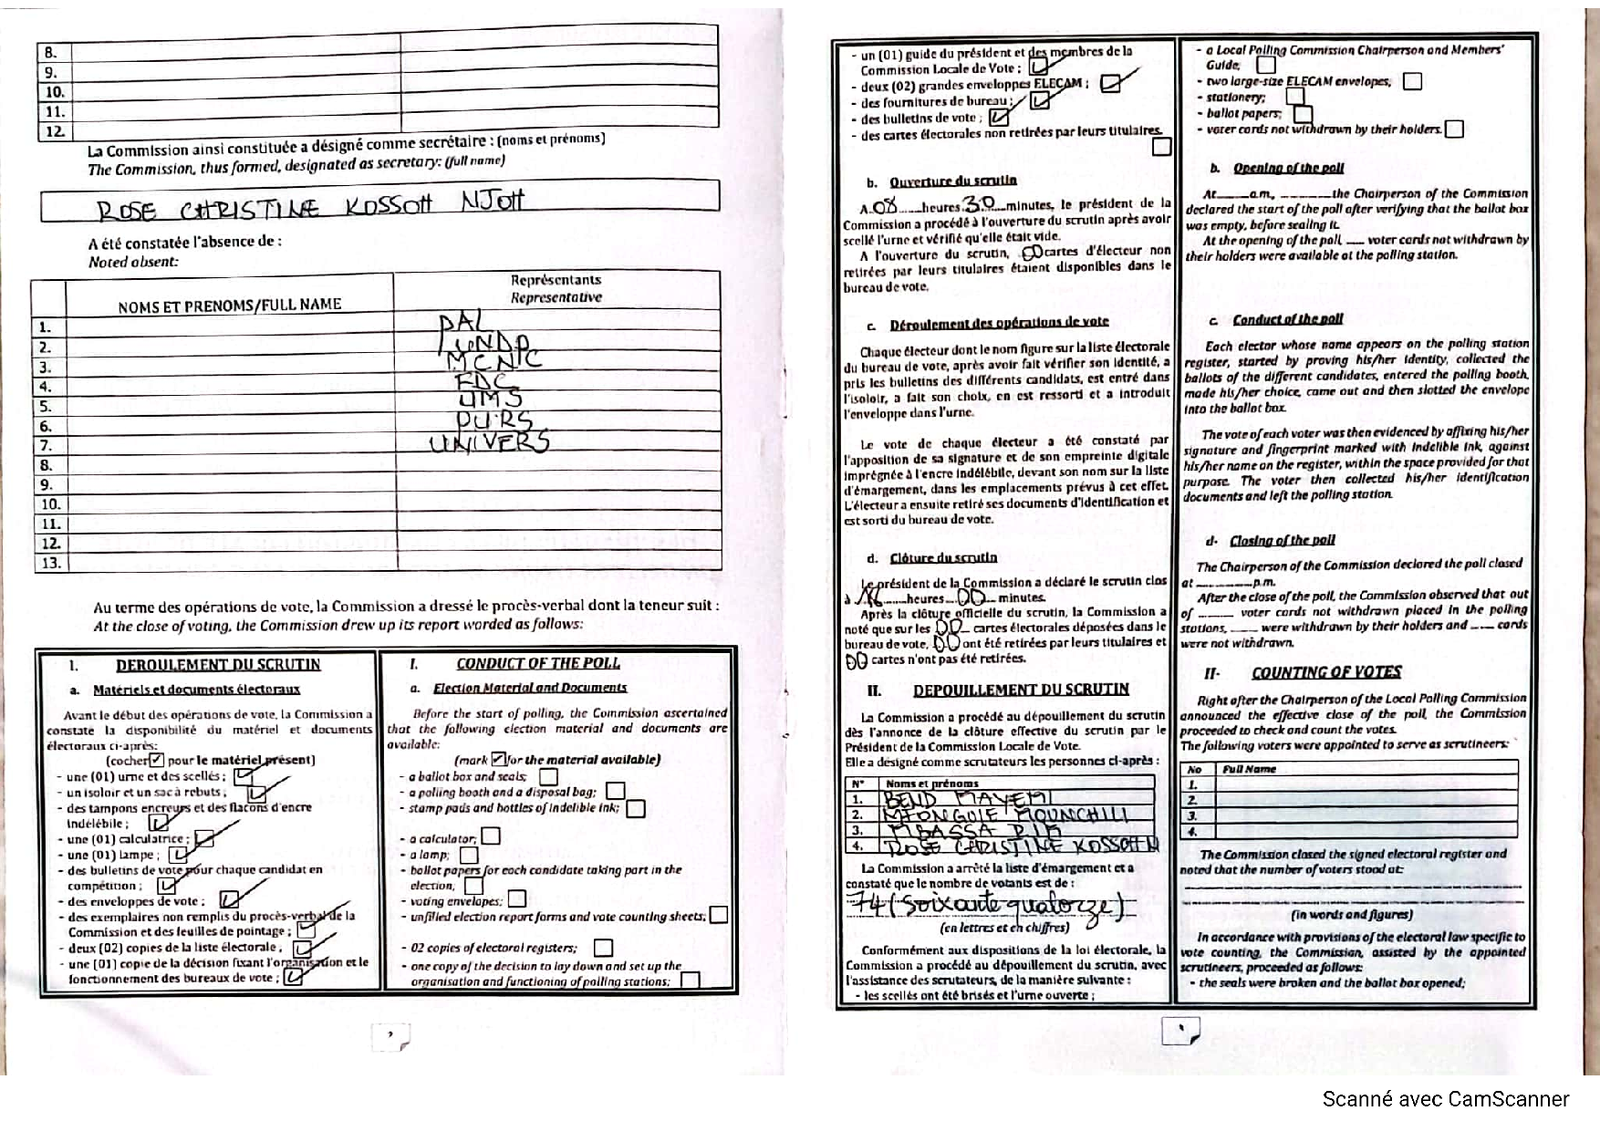 8.
9.
10.
11.
12.
La Commission ainsi constituée a désigné comme secrétaire : (noms et prénoms)
The Commission, thus formed, designated as secretary: (full name)
ROSE CHRISTINE KOSSOH NJOH
A été constatée l'absence de :
Noted absent:
NOMS ET PRENOMS/FULL NAME
Représentants
Representative
1. PAL
2. UNDP
3. MCNC
4. FDC
5. UMS
6. PURS
7. UNIVERS
8.
9.
10.
11.
12.
13.
Au terme des opérations de vote, la Commission a dressé le procès-verbal dont la teneur suit :
At the close of voting, the Commission drew up its report worded as follows:
I. DEROULEMENT DU SCRUTIN
a. Matériels et documents électoraux
Avant le début des opérations de vote, la Commission a
constaté la disponibilité du matériel et documents
électoraux ci-après:
(cocher ☑ pour le matériel présent)
- une (01) urne et des scellés ;
- un isoloir et un sac à rebuts ;
- des tampons encreurs et des flacons d'encre
indélébile ;
- une (01) calculatrice ;
- une (01) lampe ;
- des bulletins de vote pour chaque candidat en
compétition ;
- des enveloppes de vote ;
- des exemplaires non remplis du procès-verbal de la
Commission et des feuilles de pointage ;
- deux (02) copies de la liste électorale ;
- une (01) copie de la décision fixant l'organisation et le
fonctionnement des bureaux de vote ;
I. CONDUCT OF THE POLL
a. Election Material and Documents
Before the start of polling, the Commission ascertained
that the following election material and documents are
available:
(mark ☑ for the material available)
- a ballot box and seals;
- a polling booth and a disposal bag;
- stamp pads and bottles of indelible ink;
- a calculator;
- a lamp;
- ballot papers for each candidate taking part in the
election;
- voting envelopes;
- unfilled election report forms and vote counting sheets;
- 02 copies of electoral registers;
- one copy of the decision to lay down and set up the
organisation and functioning of polling stations;
- un (01) guide du président et des membres de la
Commission Locale de Vote ;
- deux (02) grandes enveloppes ELECAM ;
- des fournitures de bureau ;
- des bulletins de vote ;
- des cartes électorales non retirées par leurs titulaires.
b. Ouverture du scrutin
A 08 heures 30 minutes, le président de la
Commission a procédé à l'ouverture du scrutin après avoir
scellé l'urne et vérifié qu'elle était vide.
A l'ouverture du scrutin, 00 cartes d'électeur non
retirées par leurs titulaires étaient disponibles dans le
bureau de vote.
c. Déroulement des opérations de vote
Chaque électeur dont le nom figure sur la liste électorale
du bureau de vote, après avoir fait vérifier son identité, a
pris les bulletins des différents candidats, est entré dans
l'isoloir, a fait son choix, en est ressorti et a introduit
l'enveloppe dans l'urne.
Le vote de chaque électeur a été constaté par
l'apposition de sa signature et de son empreinte digitale
imprégnée à l'encre indélébile, devant son nom sur la liste
d'émargement, dans les emplacements prévus à cet effet.
L'électeur a ensuite retiré ses documents d'identification et
est sorti du bureau de vote.
d. Clôture du scrutin
Le président de la Commission a déclaré le scrutin clos
à 18 heures 00 minutes.
Après la clôture officielle du scrutin, la Commission a
noté que sur les 00 cartes électorales déposées dans le
bureau de vote, 00 ont été retirées par leurs titulaires et
00 cartes n'ont pas été retirées.
II. DEPOUILLEMENT DU SCRUTIN
La Commission a procédé au dépouillement du scrutin
dès l'annonce de la clôture effective du scrutin par le
Président de la Commission Locale de Vote.
Elle a désigné comme scrutateurs les personnes ci-après :
N° Noms et prénoms
1. MAYEMI
2. MOUNCHILI
3. MBASSA
4. ROSE CHRISTINE KOSSOH N
La Commission a arrêté la liste d'émargement et a
constaté que le nombre de votants est de :
74 (Soixante quatorze)
(en lettres et en chiffres)
Conformément aux dispositions de la loi électorale, la
Commission a procédé au dépouillement du scrutin, avec
l'assistance des scrutateurs, de la manière suivante :
- les scellés ont été brisés et l'urne ouverte ;
- a Local Polling Commission Chairperson and Members'
Guide;
- two large-size ELECAM envelopes;
- stationery;
- ballot papers;
- voter cards not withdrawn by their holders.
b. Opening of the poll
At____a.m, ______the Chairperson of the Commission
declared the start of the poll after verifying that the ballot box
was empty, before sealing it.
At the opening of the poll, ___ voter cards not withdrawn by
their holders were available at the polling station.
c. Conduct of the poll
Each elector whose name appears on the polling station
register, started by proving his/her identity, collected the
ballots of the different candidates, entered the polling booth,
made his/her choice, came out and then slotted the envelope
into the ballot box.
The vote of each voter was then evidenced by affixing his/her
signature and fingerprint marked with indelible ink, against
his/her name on the register, within the space provided for that
purpose. The voter then collected his/her identification
documents and left the polling station.
d- Closing of the poll
The Chairperson of the Commission declared the poll closed
at ________p.m.
After the close of the poll, the Commission observed that out
of _____ voter cards not withdrawn placed in the polling
stations, ____ were withdrawn by their holders and ____ cards
were not withdrawn.
II- COUNTING OF VOTES
Right after the Chairperson of the Local Polling Commission
announced the effective close of the poll, the Commission
proceeded to check and count the votes.
The following voters were appointed to serve as scrutineers:
No Full Name
1.
2.
3.
4.
The Commission closed the signed electoral register and
noted that the number of voters stood at:
(in words and figures)
In accordance with provisions of the electoral law specific to
vote counting, the Commission, assisted by the appointed
scrutineers, proceeded as follows:
- the seals were broken and the ballot box opened;
Scanné avec CamScanner